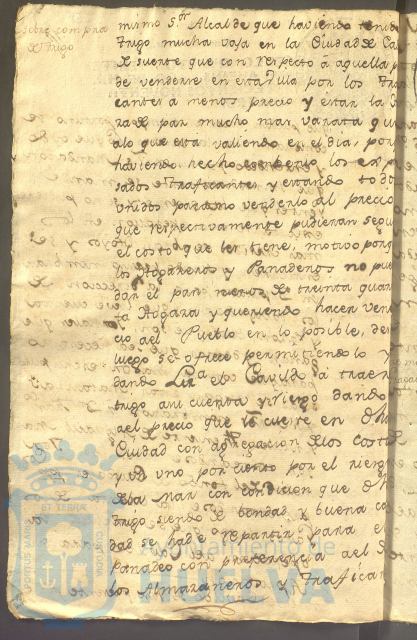 sobre compra
de trigo
mismo S.or Alcalde que haviendo tenido
trigo mucha vaja en la Ciudad de Ca
de suerte que con respecto a aquella p
de venderse en esta Villa por los Tra
cantes a menos precio y estar la
ra de pan mucho mas varata que
alo que esta valiendo en el dia, por
haviendo hecho los
sados traficantes y estando todo
unidos para no venderlo al precio
que respectivamente pudieran segu
el costo que les tiene, motivo porq
los Atagneros y Panaderos no pue
dar el pan menos de treinta quar
ta Hogaza y queriendo hacer vene
cio al Pueblo en lo posible, des
luego se ofrece permitiendolo y
dando Liz.a el Cavildo a traer
trigo asi cuenta y riesgo dando
a el precio que le cueste en dha
Ciudad con agregacion de los Costos
y de uno por ciento por el riesgo
de la Mar con condicion que dho
trigo siendo de bondad y buena ca
dad se ha de repartir para el
Panadeo con preferencia a el de
los Almazeneros y Trafican
PORTUS MARIS
ET TERRAE
CUSTODIA
Ayuntamiento de
HUELVA